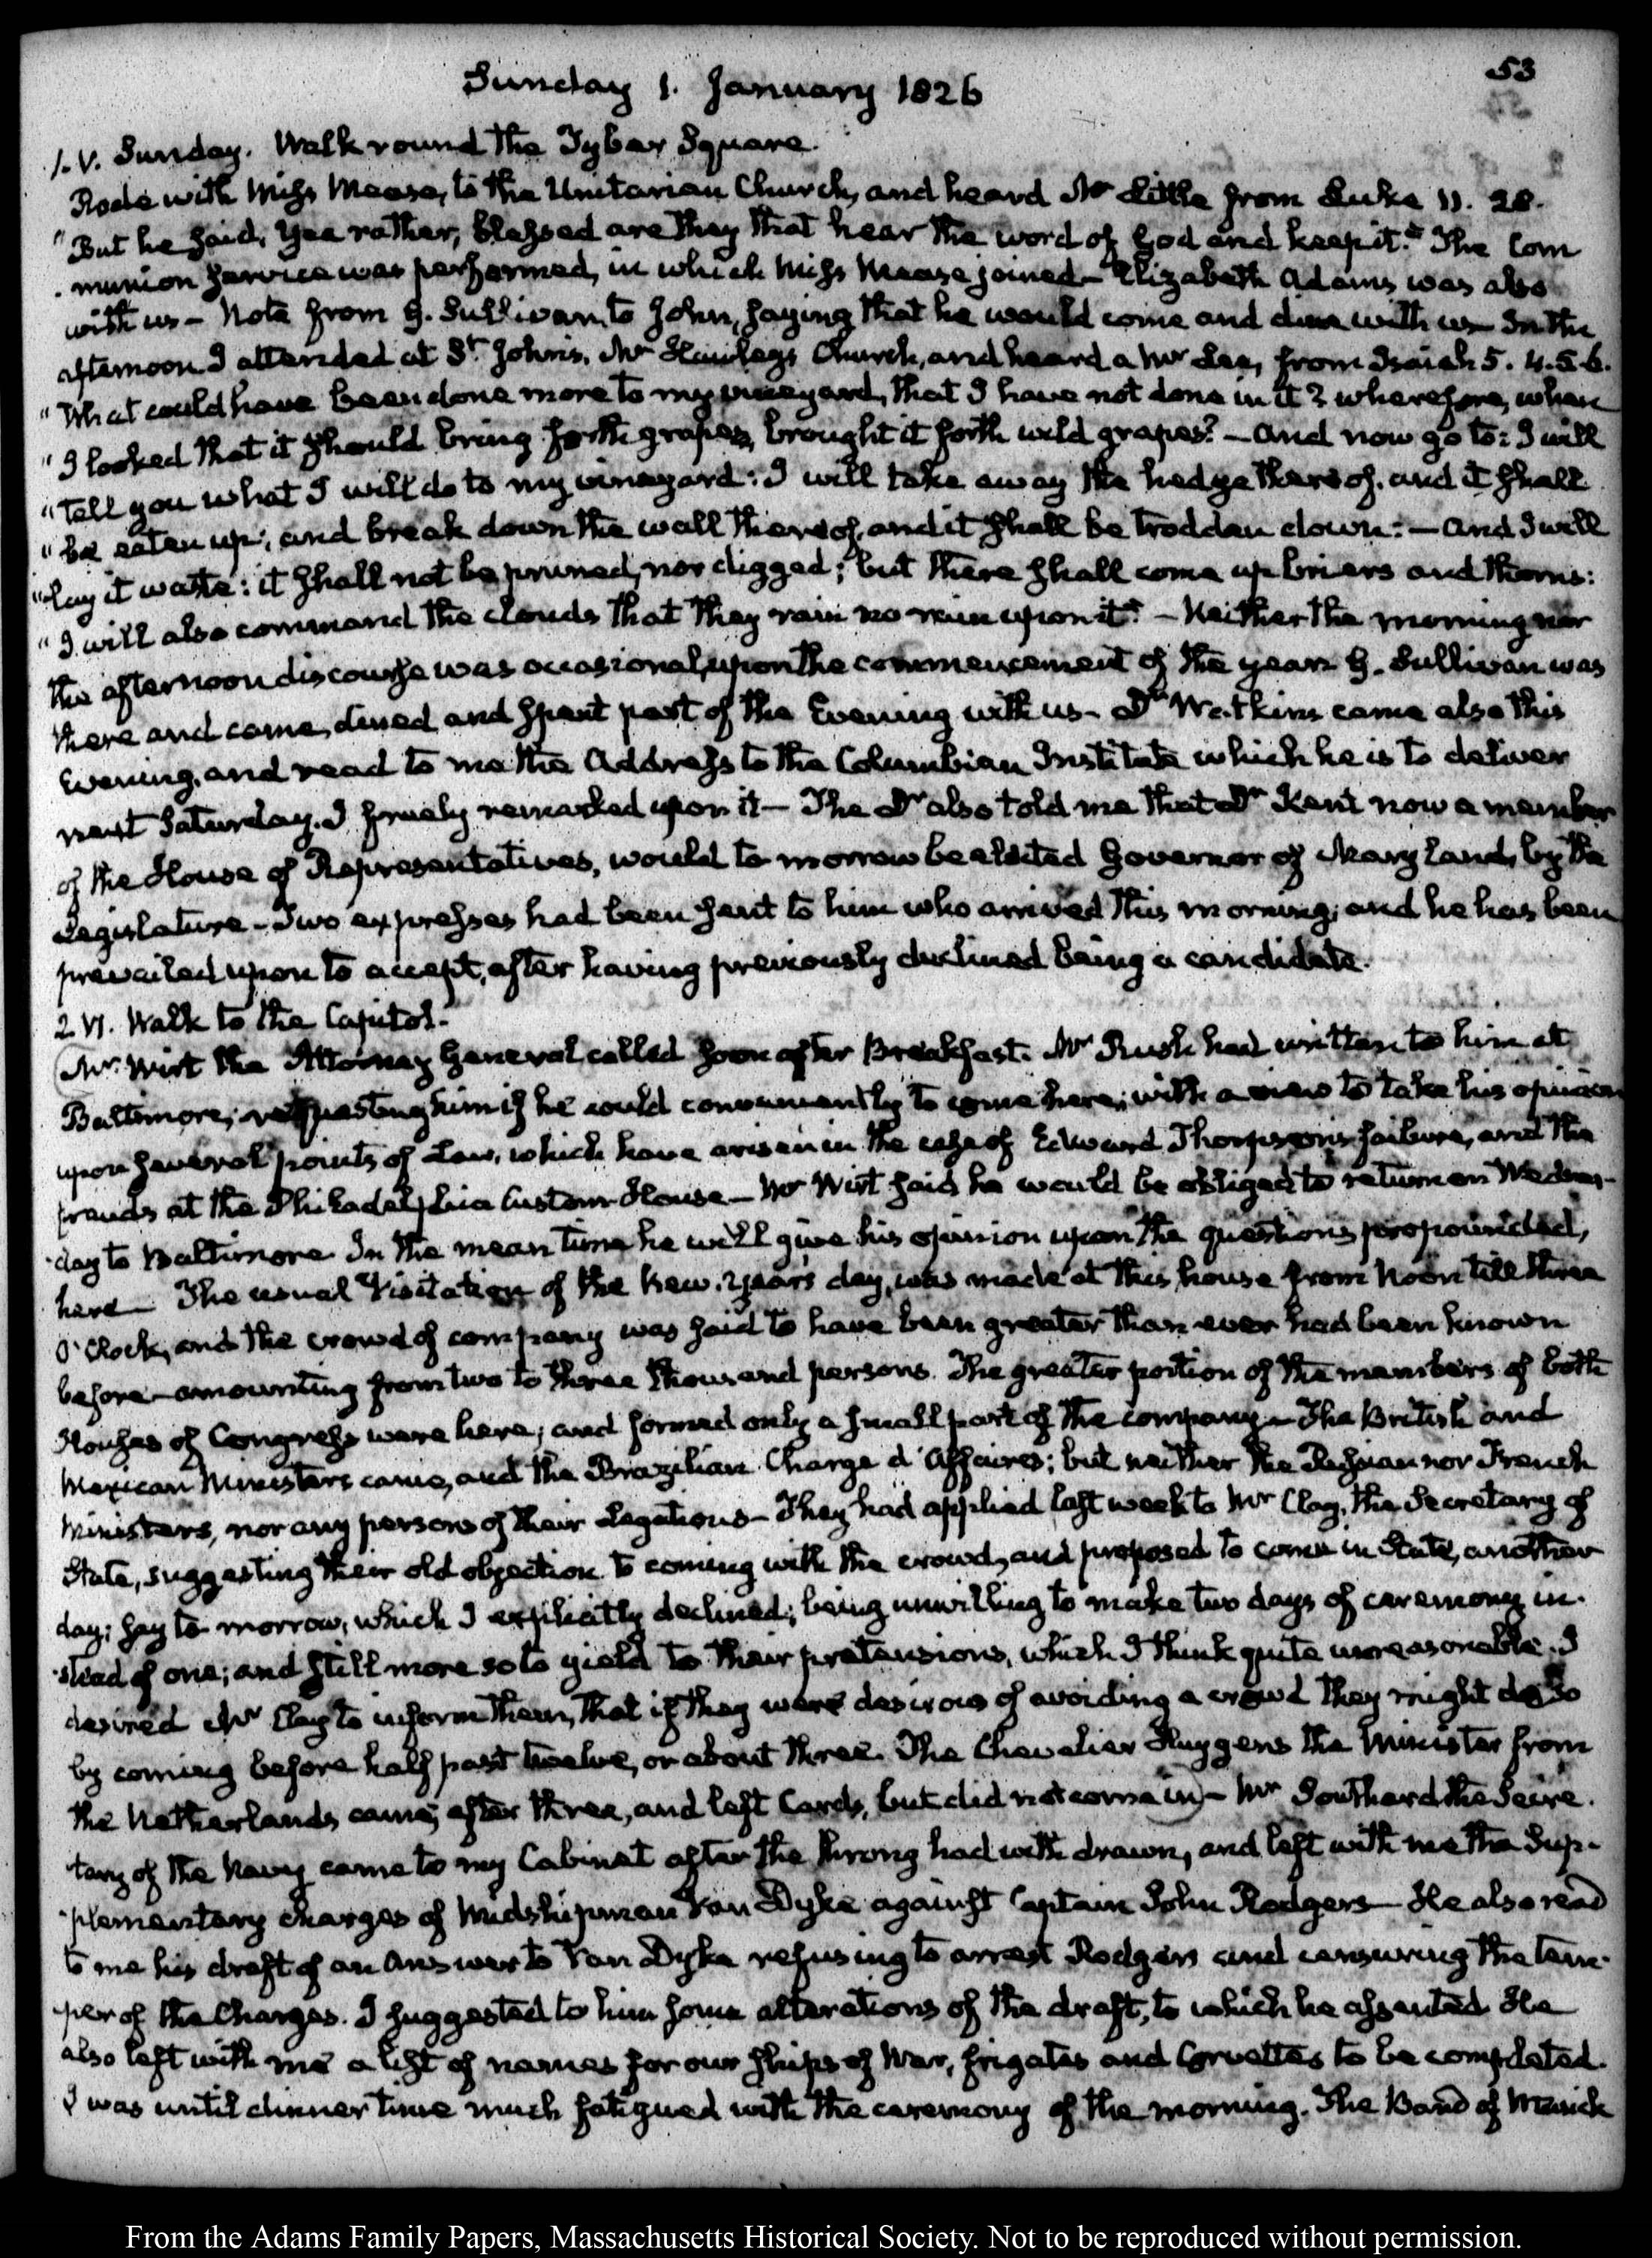 53
Sunday 1. January 1826
1. V. Sunday. Walk round the Tyber Square.
Rode with Miss Mease, to the Unitarian Church, and heard Mr Little from Luke 11. 28.
"But he said, Yea rather, blessed are they that hear the word of God and keep it." The Com
munion service was performed, in which Miss Mease joined — Elizabeth Adams was also
with us — Note from G. Sullivan, to John, saying that he would come and dine with us — In the
afternoon I attended at St. John's, Mr Hawley's Church, and heard a Mr Lee, from Isaiah 5. 4.5.6.
"What could have been done more to my vineyard, that I have not done in it? wherefore, when
"I looked that it should bring forth grapes, brought it forth wild grapes? — And now go to: I will
"tell you what I will do to my vineyard: I will take away the hedge thereof, and it shall
"be eaten up; and break down the wall thereof, and it shall be trodden down: — And I will
"lay it waste: it shall not be pruned, nor digged; but there shall come up briers and thorns:
"I will also command the clouds that they rain no rain upon it." — Neither the morning nor
the afternoon discourse was occasional, upon the commencement of the year. G. Sullivan was
there and came, dined and spent part of the Evening with us — Dr Watkins came also this
Evening, and read to me the Address to the Columbian Institute which he is to deliver
next Saturday. I freely remarked upon it — The Dr also told me that Dr Kent now a member
of the House of Representatives, would to morrow be elected Governor of Maryland, by the
Legislature — Two expresses had been sent to him who arrived this morning; and he has been
prevailed upon to accept, after having previously declined being a candidate.
2. VI. Walk to the Capitol.
Mr Wirt the Attorney General called soon after Breakfast. Mr Rush had written to him at
Baltimore, requesting him if he could conveniently to come here; with a view to take his opinion
upon several points of Law, which have arisen in the case of Edward Thompson's failure, and the
frauds at the Philadelphia Custom House — Mr Wirt said he would be obliged to return on Wednes-
day to Baltimore. In the mean time he will give his opinion upon the questions propounded,
here — The usual Visitation of the New-Years day, was made at this house from Noon till three
O'Clock, and the crowd of company was said to have been greater than ever had been known
before — amounting from two to three thousand persons. The greater portion of the members of both
Houses of Congress were here, and formed only a small part of the company — The British and
Mexican Ministers came, and the Brazilian Charge d'Affaires; but neither the Russian nor French
Ministers, nor any persons of their Legations — They had applied last week to Mr Clay, the Secretary of
State, suggesting their old objection to coming with the crowd, and proposed to come in State, another
day; say to-morrow, which I explicitly declined; being unwilling to make two days of ceremony in-
stead of one; and still more so to yield to their pretensions, which I think quite unreasonable. I
desired Mr Clay to inform them, that if they were desirous of avoiding a crowd they might do so
by coming before half past twelve, or about three. The Chevalier Huygens the Minister from
the Netherlands came, after three, and left Cards, but did not come in) — Mr Southard the Secre-
tary of the Navy came to my Cabinet after the throng had with drawn, and left with me the Sup-
plementary charges of Midshipman Van Dyke against Captain John Rodgers — He also read
to me his draft of an answer to Van Dyke refusing to arrest Rodgers and censuring the tem-
per of the Charges. I suggested to him some alterations of the draft, to which he assented. He
also left with me a list of names for our Ships of War, frigates and Corvettes to be completed.
I was until dinner time much fatigued with the ceremony of the morning. The Band of Musick
From the Adams Family Papers, Massachusetts Historical Society. Not to be reproduced without permission.